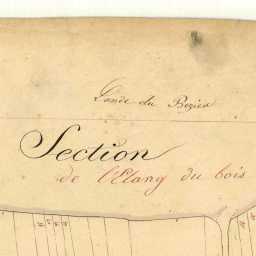 Lande du Bezier
Section
de l'Etang du bois